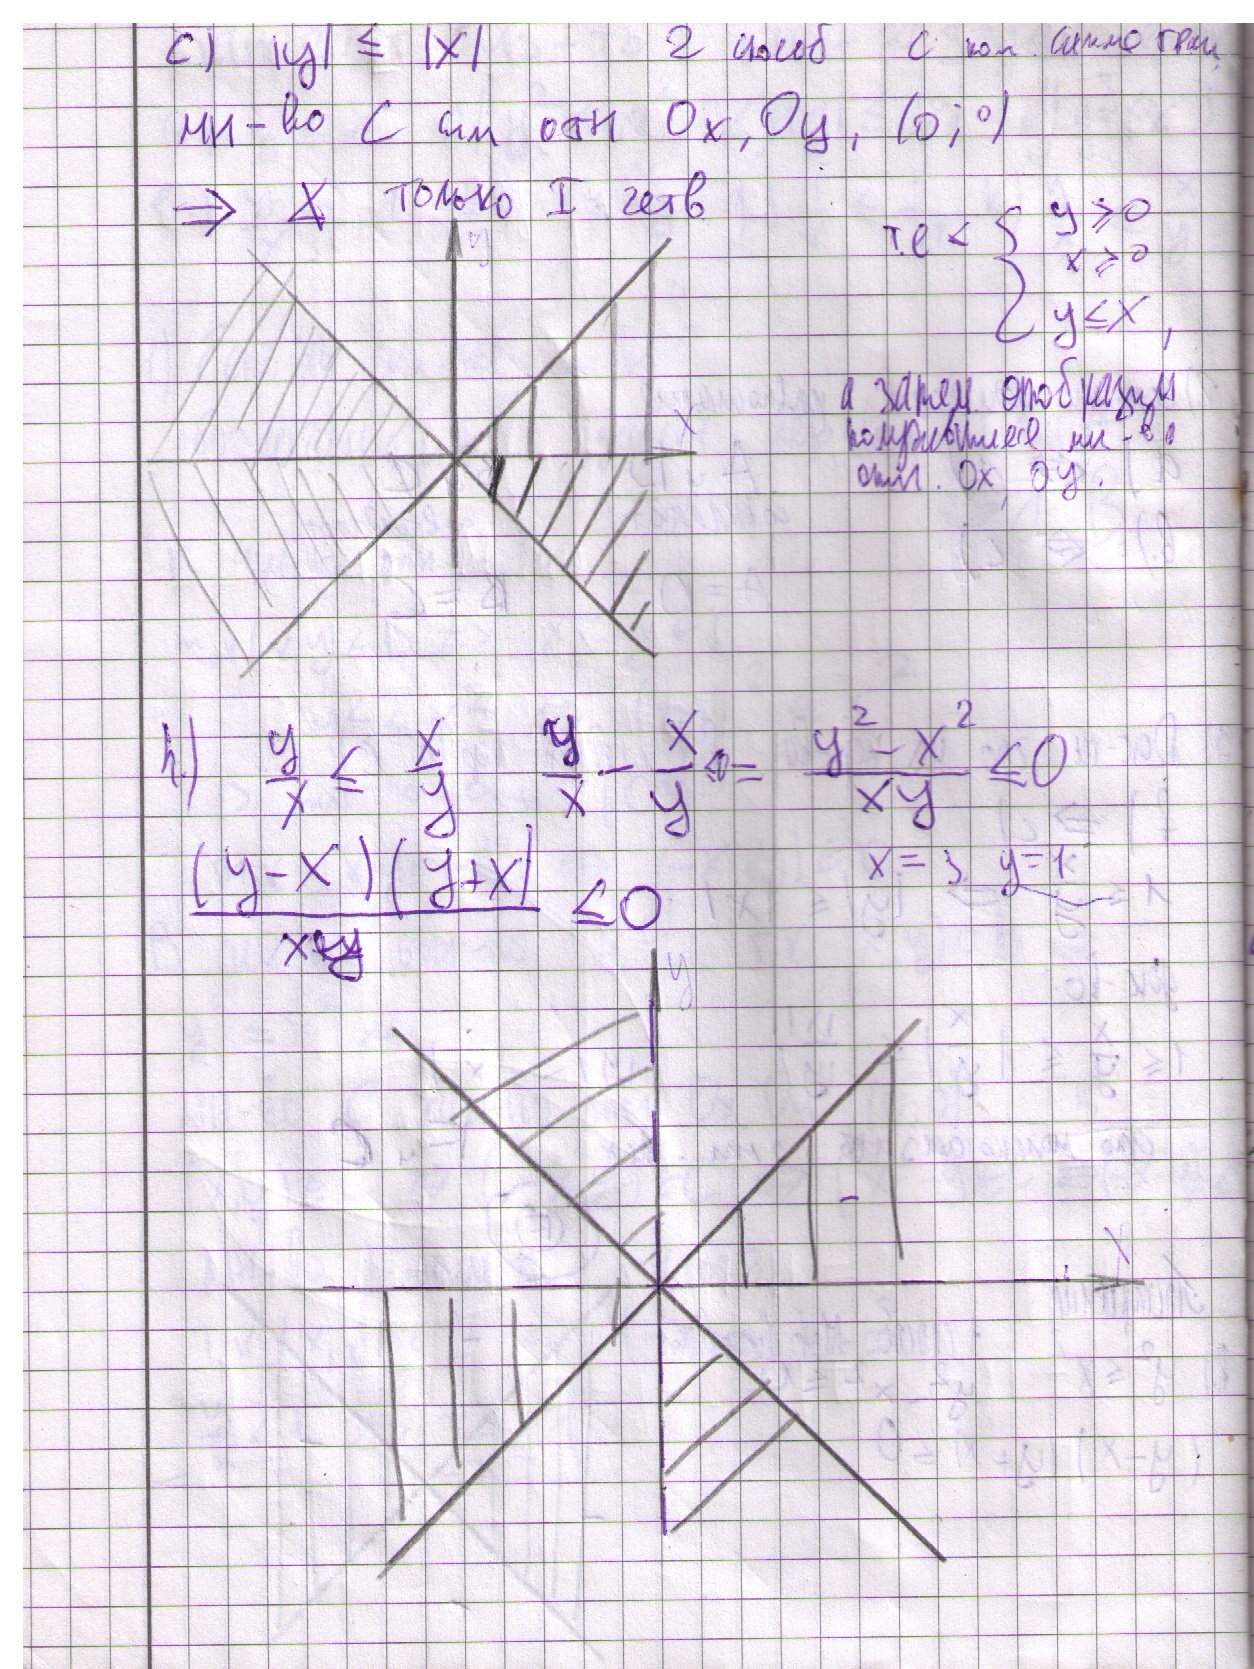 c) |y| ≤ |x| 2 способ с пом. симметрии
мн-во C сим отн Ox, Oy, (0;0)
⇒ X только I четв
т.е < { y ≥ 0
x ≥ 0
y ≤ x,
а затем отобразим
получившееся мн-во
отн. Ox, Oy.
y
x
h) y/x ≤ x/y y/x - x/y = (y² - x²)/(xy) ≤ 0
(y-x)(y+x)/(xy) ≤ 0 x = 3 y = 1
y
-
x